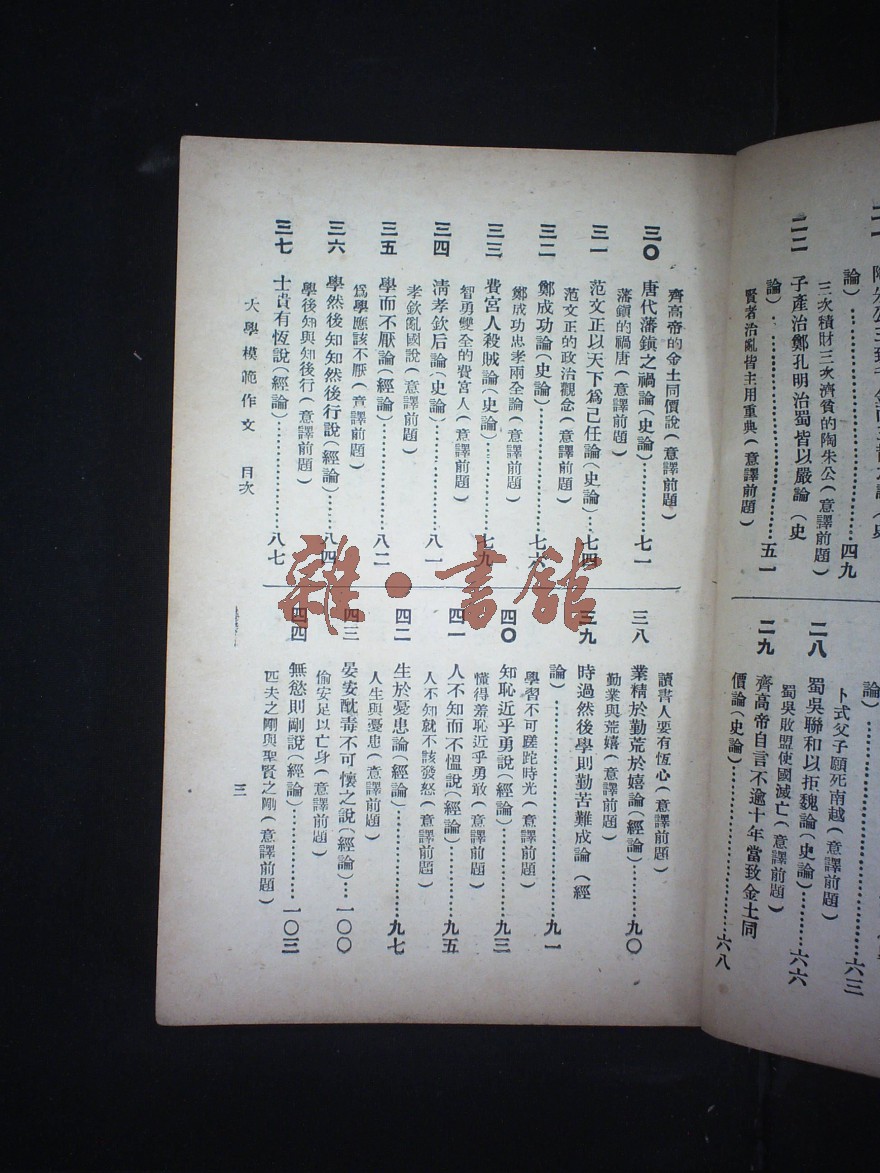 論）………………四九
三次積財三次濟貧的陶朱公（意譯前題）
二二　子產治鄭孔明治蜀皆以嚴論（史
論）………………五一
賢者治亂皆主用重典（意譯前題）
論）………………六三
卜式父子願死南越（意譯前題）
二八　蜀吳聯和以拒魏論（史論）………六六
蜀吳敗盟使國滅亡（意譯前題）
二九　齊高帝自言不逾十年當致金土同
價論（史論）………………六八
齊高帝的金土同價說（意譯前題）
三〇　唐代藩鎮之禍論（史論）………七一
藩鎮的禍唐（意譯前題）
三一　范文正以天下爲己任論（史論）…七四
范文正的政治觀念（意譯前題）
三二　鄭成功論（史論）………………七六
鄭成功忠孝兩全論（意譯前題）
三三　費宮人殺賊論（史論）…………七九
智勇雙全的費宮人（意譯前題）
三四　清孝欽后論（史論）……………八一
孝欽亂國說（意譯前題）
三五　學而不厭論（經論）……………八二
爲學應該不厭（意譯前題）
三六　學然後知知然後行說（經論）…八四
學後知與知後行（意譯前題）
三七　士貴有恆說（經論）……………八七
讀書人要有恆心（意譯前題）
三八　業精於勤荒於嬉論（經論）……九〇
勤業與荒嬉（意譯前題）
三九　時過然後學則勤苦難成論（經
論）………………九一
學習不可蹉跎時光（意譯前題）
四〇　知恥近乎勇說（經論）…………九三
懂得羞恥近乎勇敢（意譯前題）
四一　人不知而不慍說（經論）………九五
人不知就不該發怒（意譯前題）
四二　生於憂患論（經論）……………九七
人生與憂患（意譯前題）
四三　晏安酖毒不可懷之說（經論）…一〇〇
偷安足以亡身（意譯前題）
四四　無慾則剛說（經論）……………一〇三
匹夫之剛與聖賢之剛（意譯前題）
大學模範作文　目次
三
雜·書館